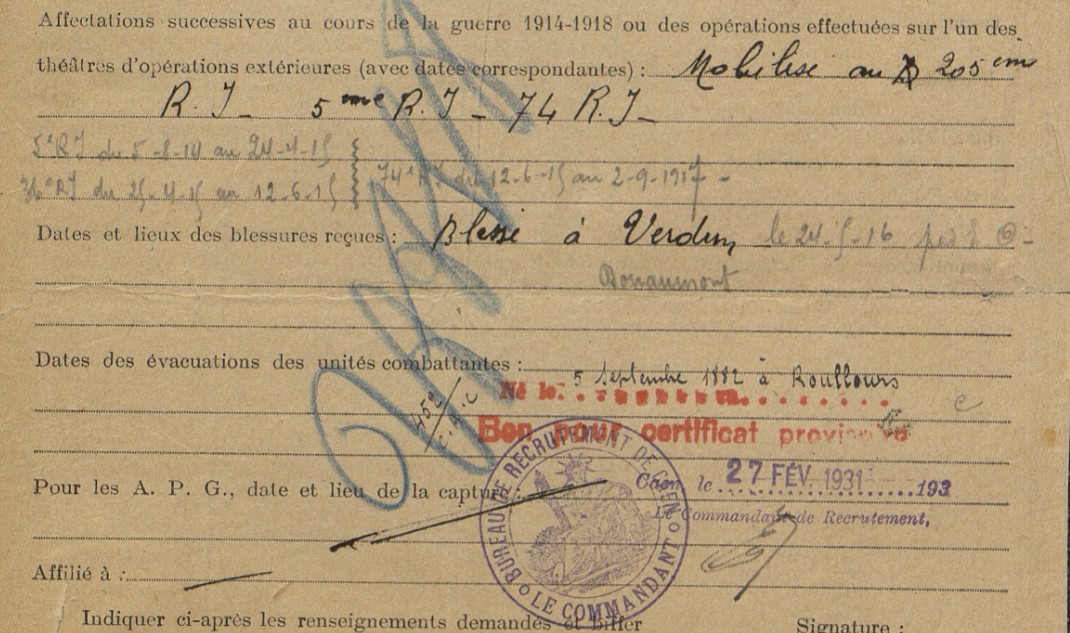 Affectations successives au cours de la guerre 1914-1918 ou des opérations effectuées sur l'un des
théâtres d'opérations extérieures (avec dates correspondantes) : Mobilisé au 205 eme
R. I _ 5 eme R. I _ 74 R. I _
5e RI du 5-8-14 au 24-4-15
36e RI du 25-4-15 au 12-6-15 74e RI du 12-6-15 au 2-9-1917 -
Dates et lieux des blessures reçues : Blessé à Verdun, le 24-5-16 par E.O.
Douaumont
Dates des évacuations des unités combattantes :
Né le 5 Septembre 1882 à Roullours
Bon pour certificat provisoire
BUREAU DE RECRUTEMENT DE CAEN
LE COMMANDANT
Pour les A. P. G., date et lieu de la capture :
Caen, le 27 FÉV. 1931 193
Le Commandant de Recrutement,
Affilié à :
Indiquer ci-après les renseignements demandés et biffer
Signature :